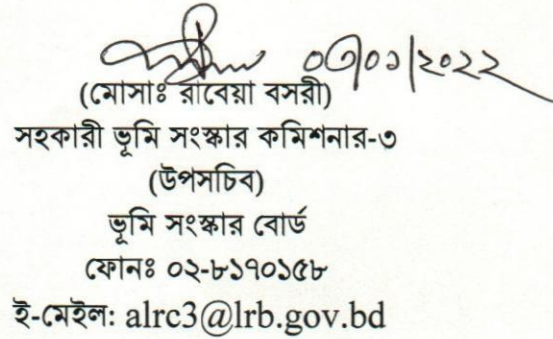 ০৩/০১/২০২২
(মোসাঃ রাবেয়া বসরী)
সহকারী ভূমি সংস্কার কমিশনার-৩
(উপসচিব)
ভূমি সংস্কার বোর্ড
ফোনঃ ০২-৮১৭০১৫৮
ই-মেইল: alrc3@lrb.gov.bd